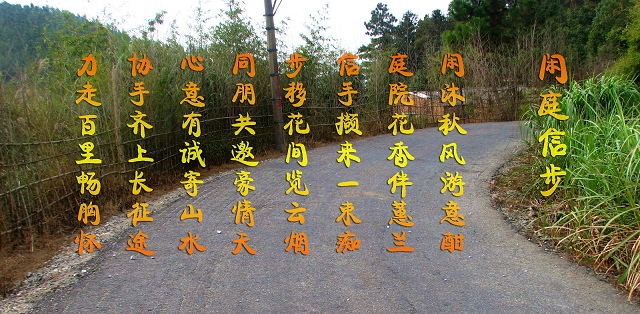 闲庭信步
闲沐秋风游意酣
庭院花香伴蕙兰
信手撷来一束痴
步移花间览云烟
同朋共邀豪情天
心意有诚寄山水
协手齐上长征途
力走百里畅胸怀